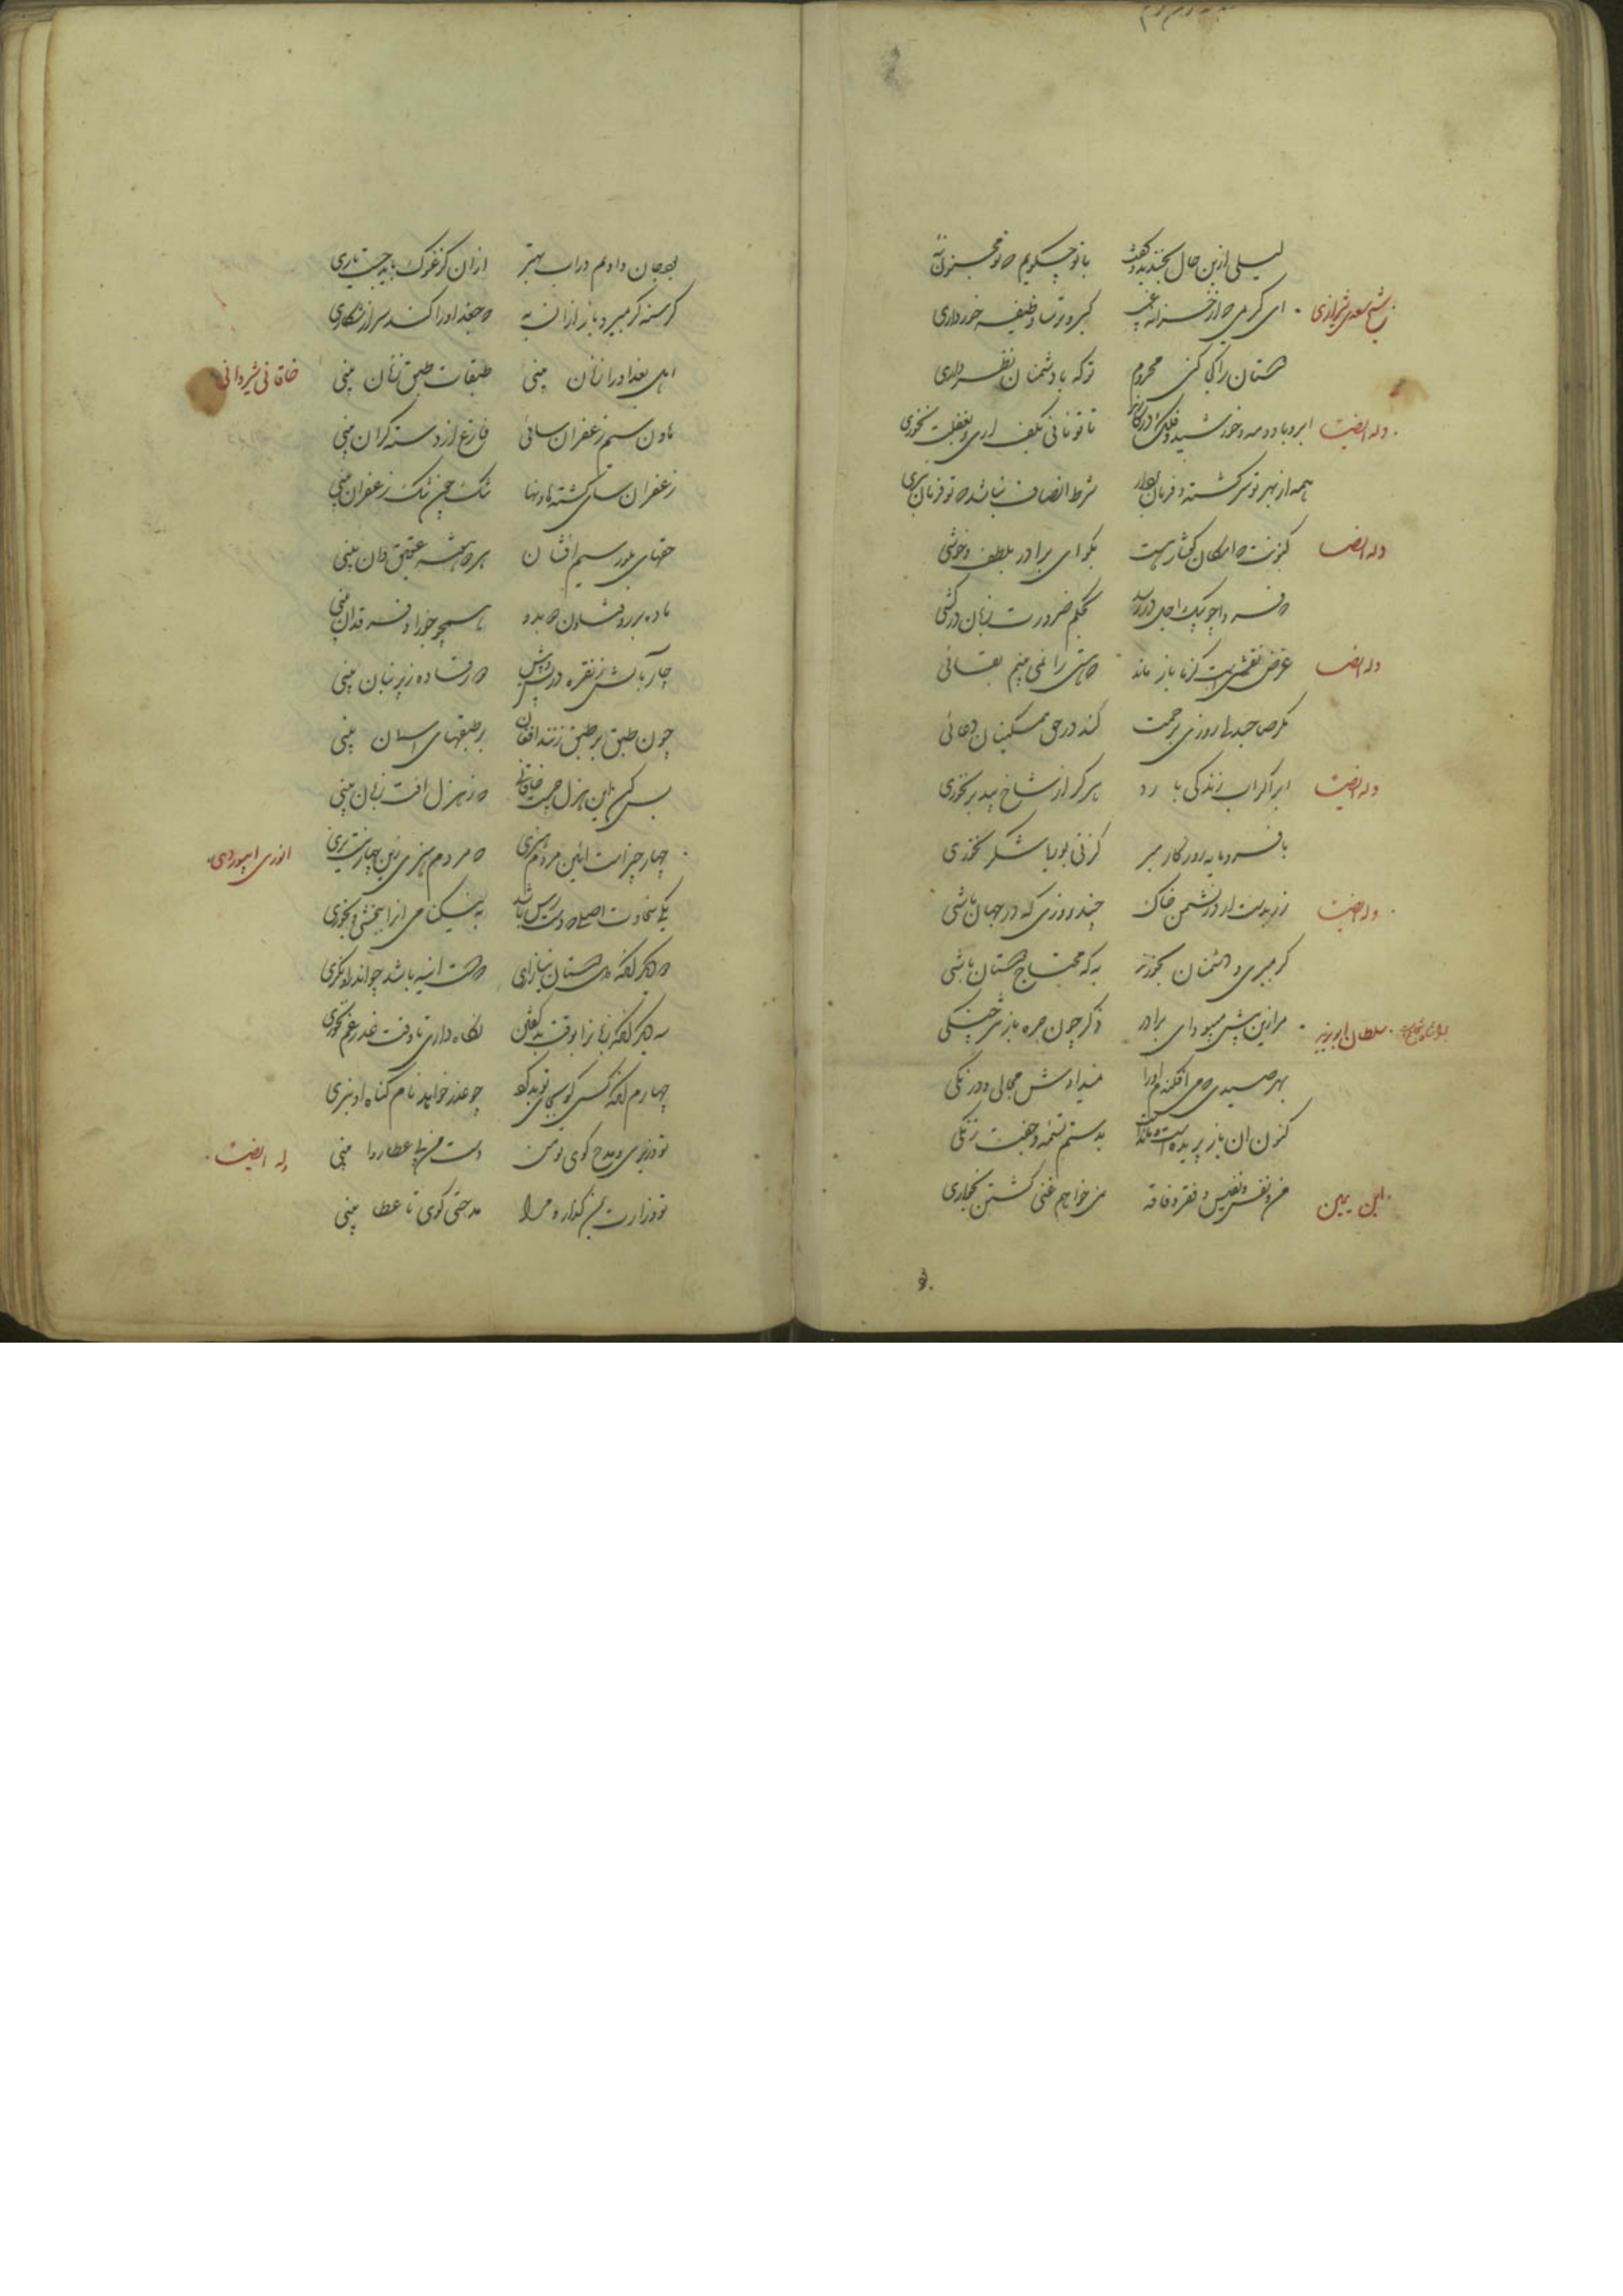 لیلی ازین حال بخندید و گفت با تو چگویم که تو مجنون نهٔ
شیخ سعدی شیرازی ای کریمی که از خزانه غیب کبر و ترسا وظیفه خور داری
دوستان را کجا کنی محروم تو که با دشمنان نظر داری
وله ایضا ابر و باد و مه و خورشید و فلک در کارند تا تو نانی بکف اری و بغفلت نخوری
همه از بهر تو سرکشته و فرمان بردار شرط انصاف نباشد که تو فرمان نبری
وله ایضا کنونت که امکان گفتار هست بگو ای برادر بلطف و خوشی
که فردا چو پیک اجل در رسد بحکم ضرورت زبان در کشی
وله ایضا غرض نقشیست کز ما باز ماند که هستی را نمی بینم بقائی
مگر صاحبدلی روزی برحمت کند در حق مسکینان دعائی
وله ایضا ابر اگر اب زندگی بارد هرگز از شاخ بید بر نخوری
با فرومایه روزگار مبر کز نی بوریا شکر نخوری
وله ایضا زر بدست ار و در دشمن خاک چند روزی که در جهان باشی
گر بمیری و دشمنان بخورند به که محتاج دوستان باشی
سلطان ابویزید مرا زین پیش میبود ای برادر چون جره باز
بهر صیدی که می افکندم او را نمیدادش مجالی و درنگی
کنون ان باز پریده است بدستم تسمه و جفت زنگی
ابن یمین من و نفس نفیس و فقر و فاقه نمی خواهم غنی گشتن بخواری
بجان دادم در اب بهتر ازان کز غوک باید جست یاری
گرسنه گر بمیرد باز ازان به که جغد او را کند سیر از شکاری
خاقانی شیروانی اهل بغداد را زنان بینی طبقات طبق زنان بینی
هاون سیم زعفران سائی فارغ از دسته گران بینی
زعفران سای گشته هاونها تنگ تنگ زعفران بینی
حقهای بلور سیم افشان هر دو هفته عقیق دان بینی
ماده بر رو فتاده
چار بالش ز نقره که فتاده زیر بینی
چون طبق بر طبق زنند افغان بر طبقهای اسمان بینی
بس کن این هزل چیست خاقانی که ز هزل افت زبان بینی
انوری ابیوردی چهار چیز است ائین مردم هنری که مردم هنری زین چهار نیست بری
یکی سخاوت طبعی که دست رس باشد به نیکنامی انرا ببخشی و بخوری
دو دیگر انکه دل دوستان نیازاری که دوست اینه باشد چو اندرو نگری
سه دیگر انکه زبانرا بوقت بد گفتن نگاه داری تا وقت عذر غم نخوری
چهارم انکه کسی کو بجای تو بد کرد چو عذر خواهد نام گناه او نبری
وله ایضا تو وزیری و مدح گوی تو من دست من بی عطا روا بینی
تو وزارت بمن گذار و مرا مدحتی گوی تا عطا بینی